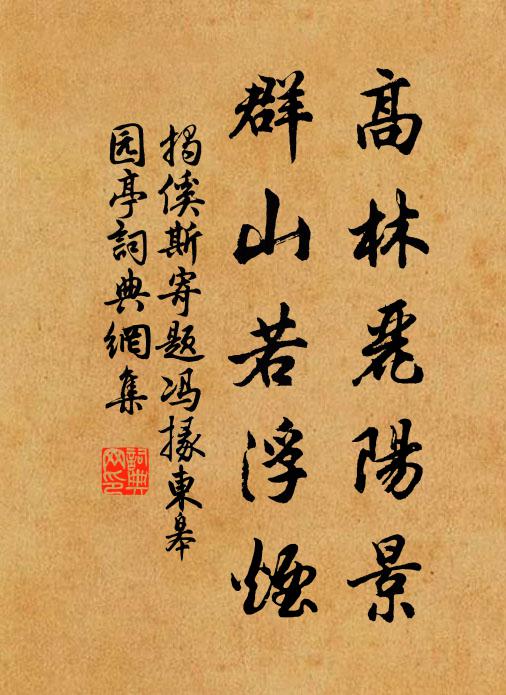 高林麗陽景
群山若浮煙
揭傒斯寄題馮掾東皋
园亭詞典網集
詞典網印